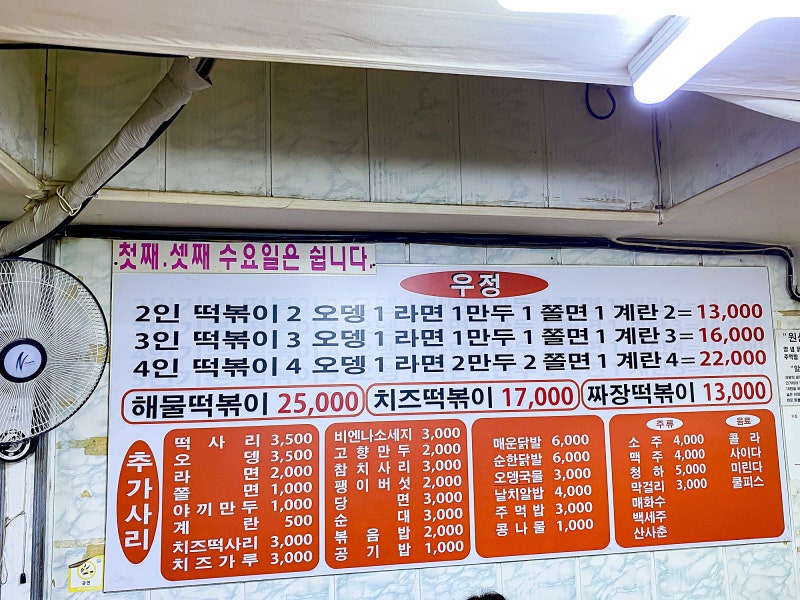 첫째.셋째 수요일은 쉽니다.
우정
2인 떡볶이 2 오뎅 1 라면 1만두 1 쫄면 1 계란 2=13,000
3인 떡볶이 3 오뎅 1 라면 1만두 1 쫄면 1 계란 3=16,000
4인 떡볶이 4 오뎅 1 라면 2만두 2 쫄면 1 계란 4=22,000
해물떡볶이 25,000
치즈떡볶이 17,000
짜장떡볶이 13,000
추가사리
떡사리 3,500
오뎅 3,500
라면 2,000
쫄면 1,000
야끼만두 1,000
계란 500
치즈떡사리 3,000
치즈가루 3,000
비엔나소세지 3,000
고향만두 2,000
참치사리 3,000
팽이버섯 2,000
당면 3,000
순대 3,000
볶음밥 2,000
공기밥 1,000
매운닭발 6,000
순한닭발 6,000
오뎅국물 3,000
날치알밥 4,000
주먹밥 3,000
콩나물 1,000
주류
소주 4,000
맥주 4,000
청하 5,000
막걸리 3,000
매화수
백세주
산사춘
음료
콜라
사이다
미린다
쿨피스
금연